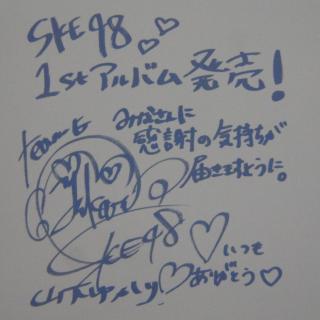 SKE48♡♡
1stアルバム発売！
みなさんに
感謝の気持ちが
届きますように。
team E
SKE48
♡いつも
ありがとう♡